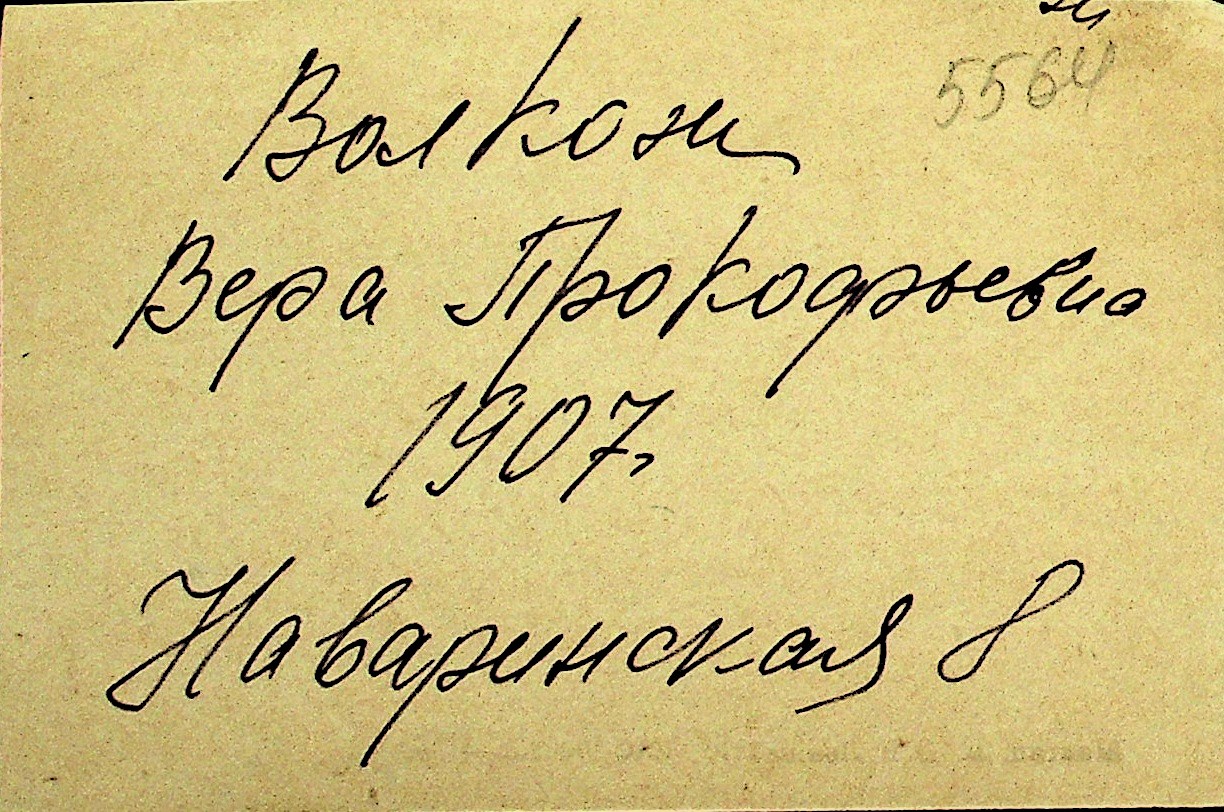 5564
Волкон
Вера Прокофьевна
1907г.
Наваринская 8